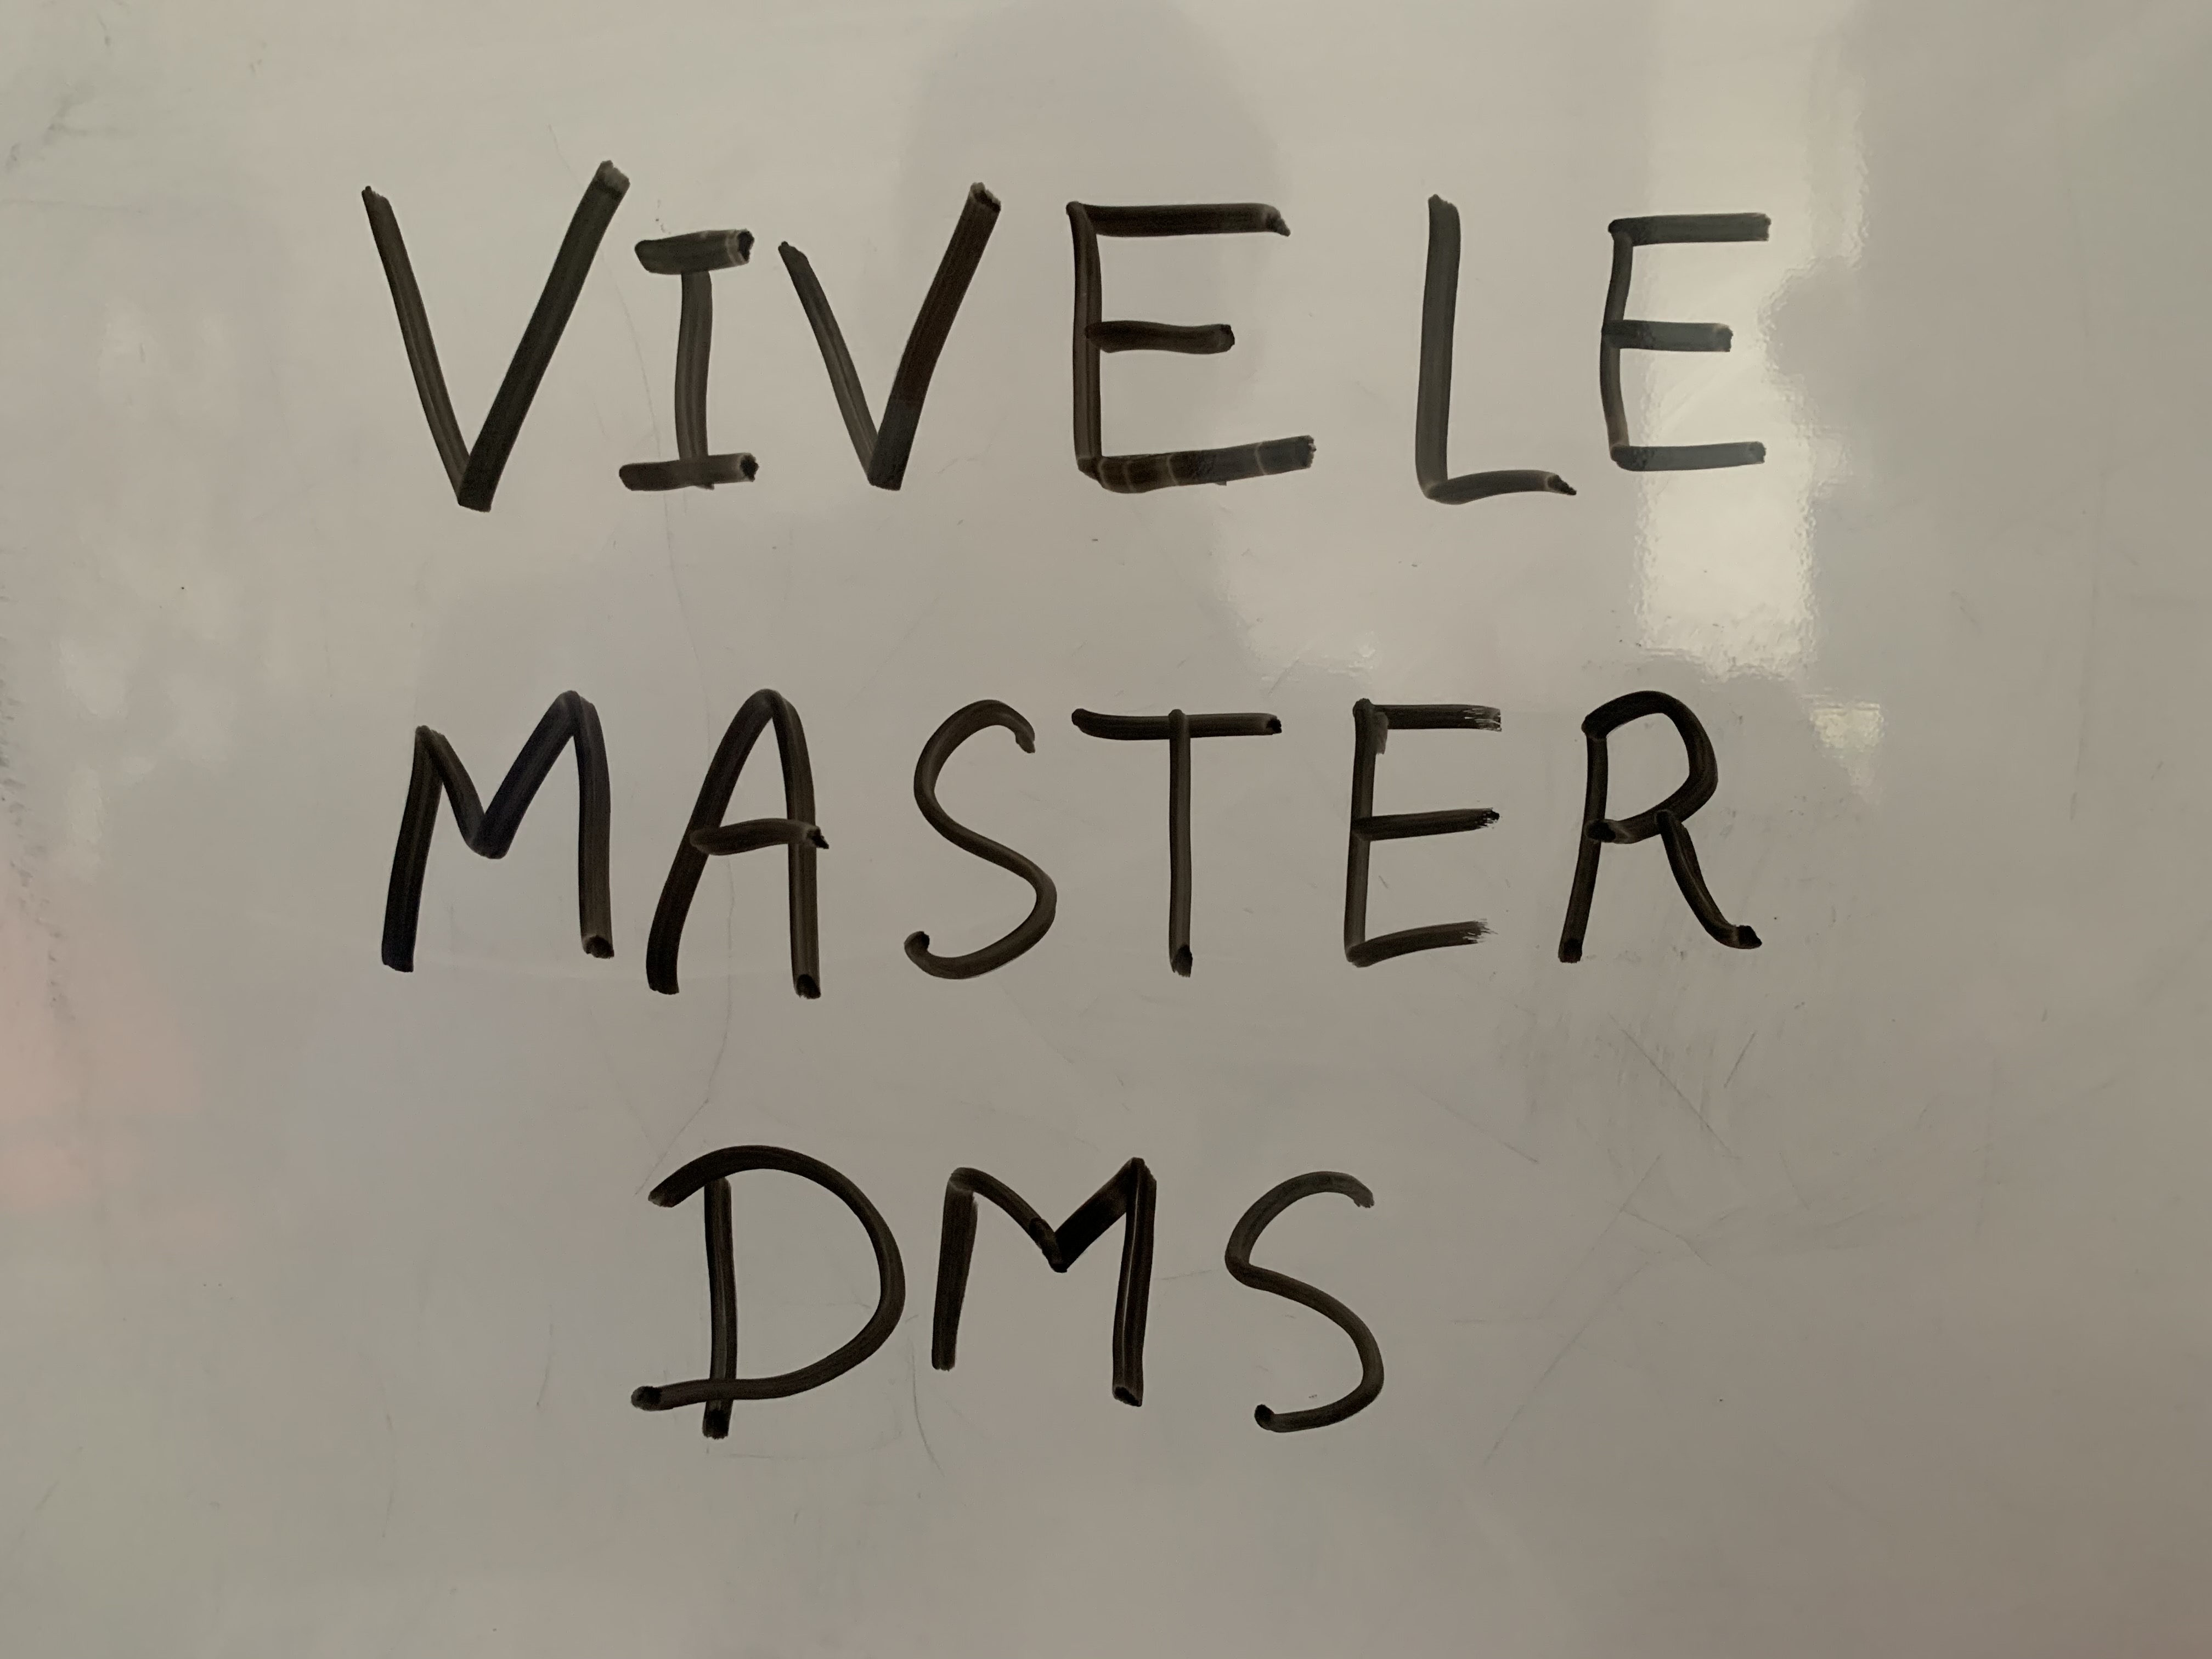 VIVE LE
MASTER
DMS